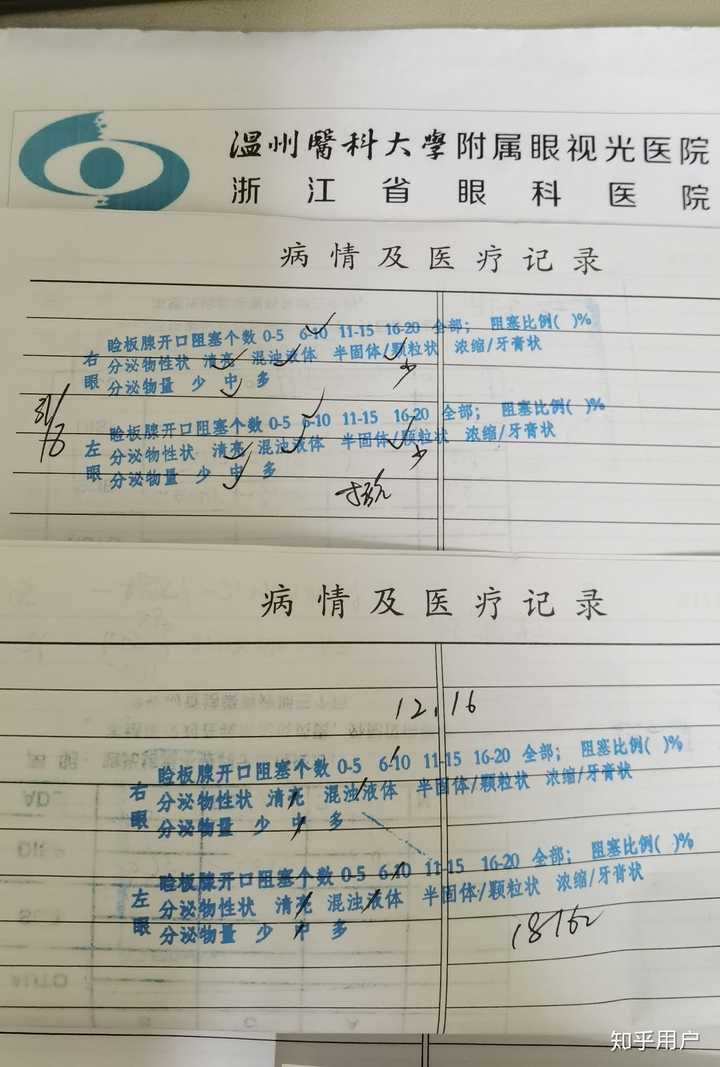 温州醫科大學附属眼视光医院
浙江省眼科医院
病情及医疗记录
睑板腺开口阻塞个数 0-5 6-10 11-15 16-20 全部； 阻塞比例( )%
右 分泌物性状 清亮 混浊液体 半固体/颗粒状 浓缩/牙膏状
眼 分泌物量 少 中 多 少
睑板腺开口阻塞个数 0-5 6-10 11-15 16-20 全部； 阻塞比例( )%
左 分泌物性状 清亮 混浊液体 半固体/颗粒状 浓缩/牙膏状
眼 分泌物量 少 中 多 少
病情及医疗记录
12.16
睑板腺开口阻塞个数 0-5 6-10 11-15 16-20 全部； 阻塞比例( )%
右 分泌物性状 清亮 混浊液体 半固体/颗粒状 浓缩/牙膏状
眼 分泌物量 少 中 多
睑板腺开口阻塞个数 0-5 6-10 11-15 16-20 全部； 阻塞比例( )%
左 分泌物性状 清亮 混浊液体 半固体/颗粒状 浓缩/牙膏状
眼 分泌物量 少 中 多
知乎用户